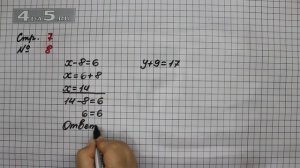 4 да 5.NET
Стр. 7
№ 8
x-8=6
x=6+8
x=14
14-8=6
6=6
Ответ
y+9=17